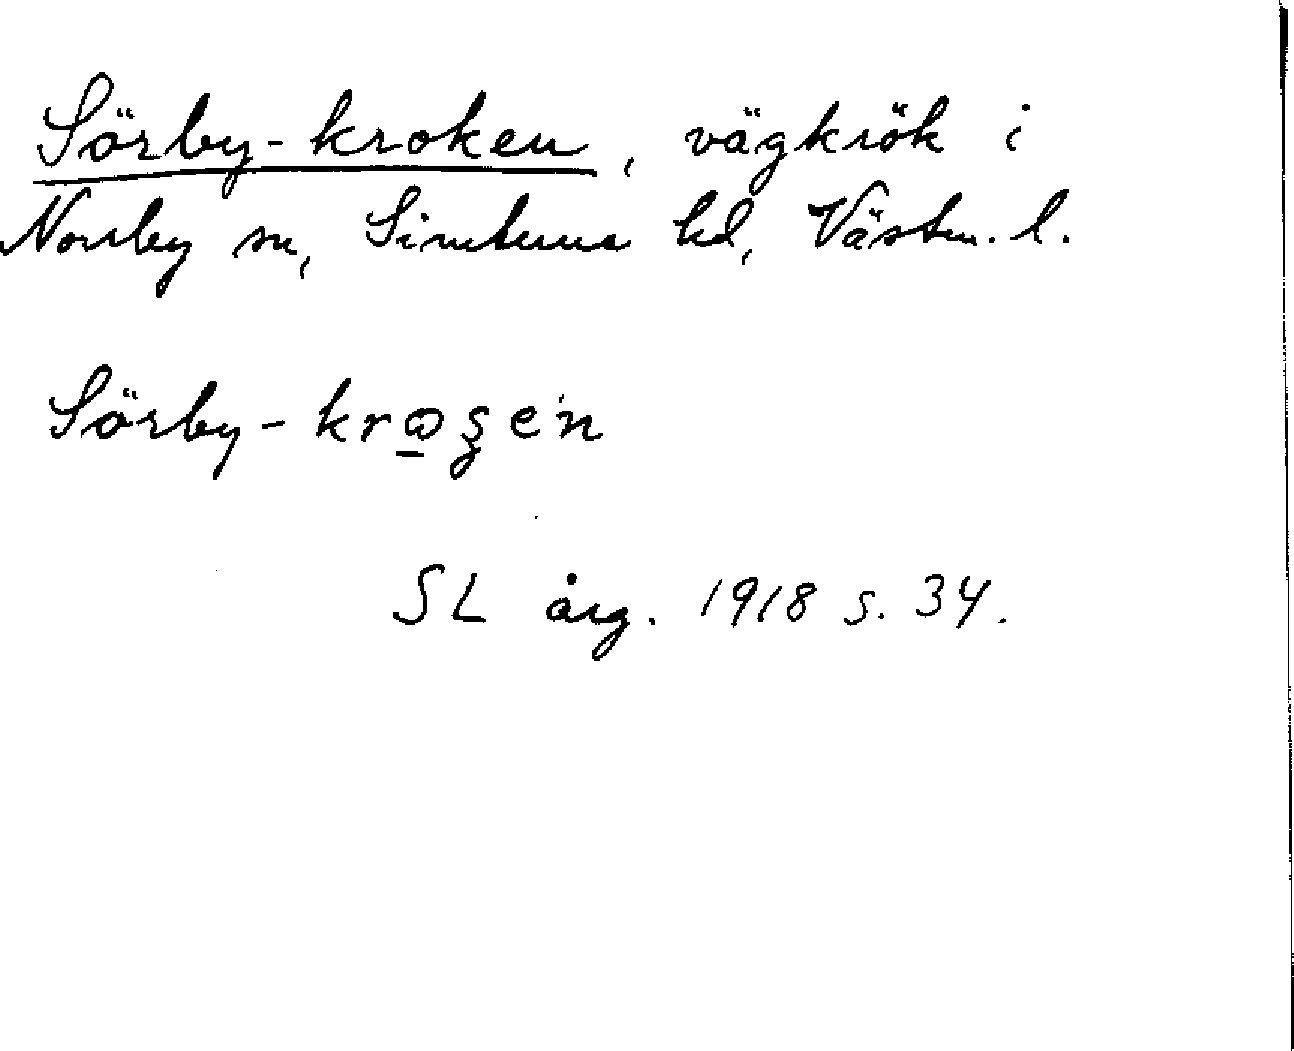 Sörby-kroken, vägkrök i
Norrby sn, Simtuna hd, Västm. l.
Sörby-
SL årg. 1918 s. 34.